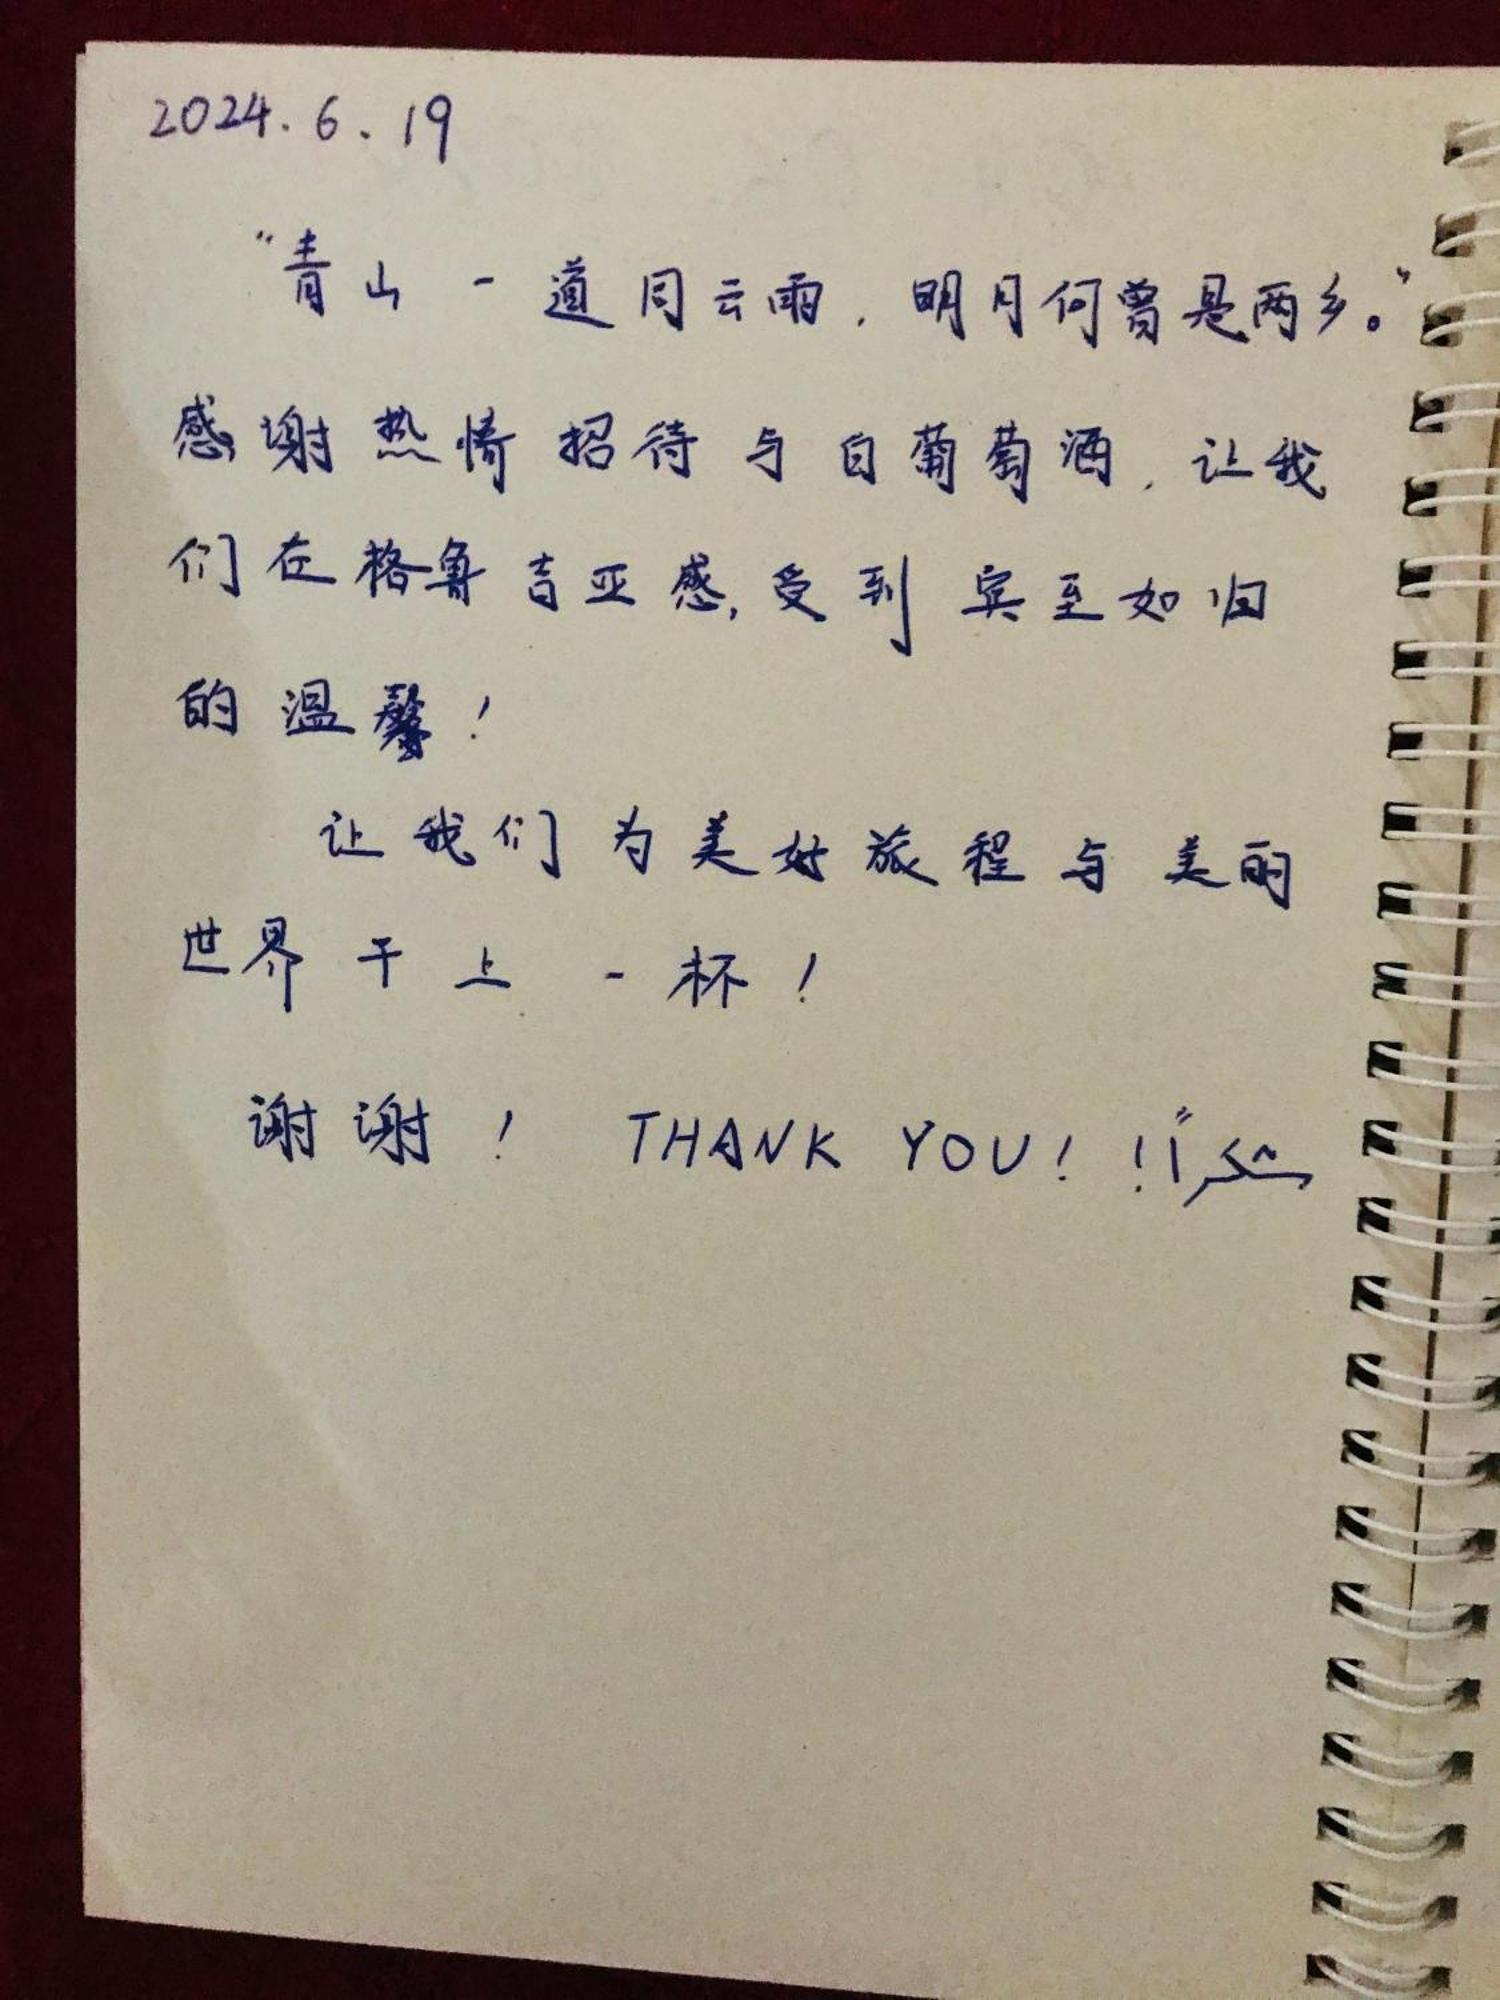 2024.6.19
"青山一道同云雨，明月何曾是两乡。"
感谢热情招待与白葡萄酒，让我
们在格鲁吉亚感受到宾至如归
的温馨！
让我们为美好旅程与美丽
世界干上一杯！
谢谢！ THANK YOU！！